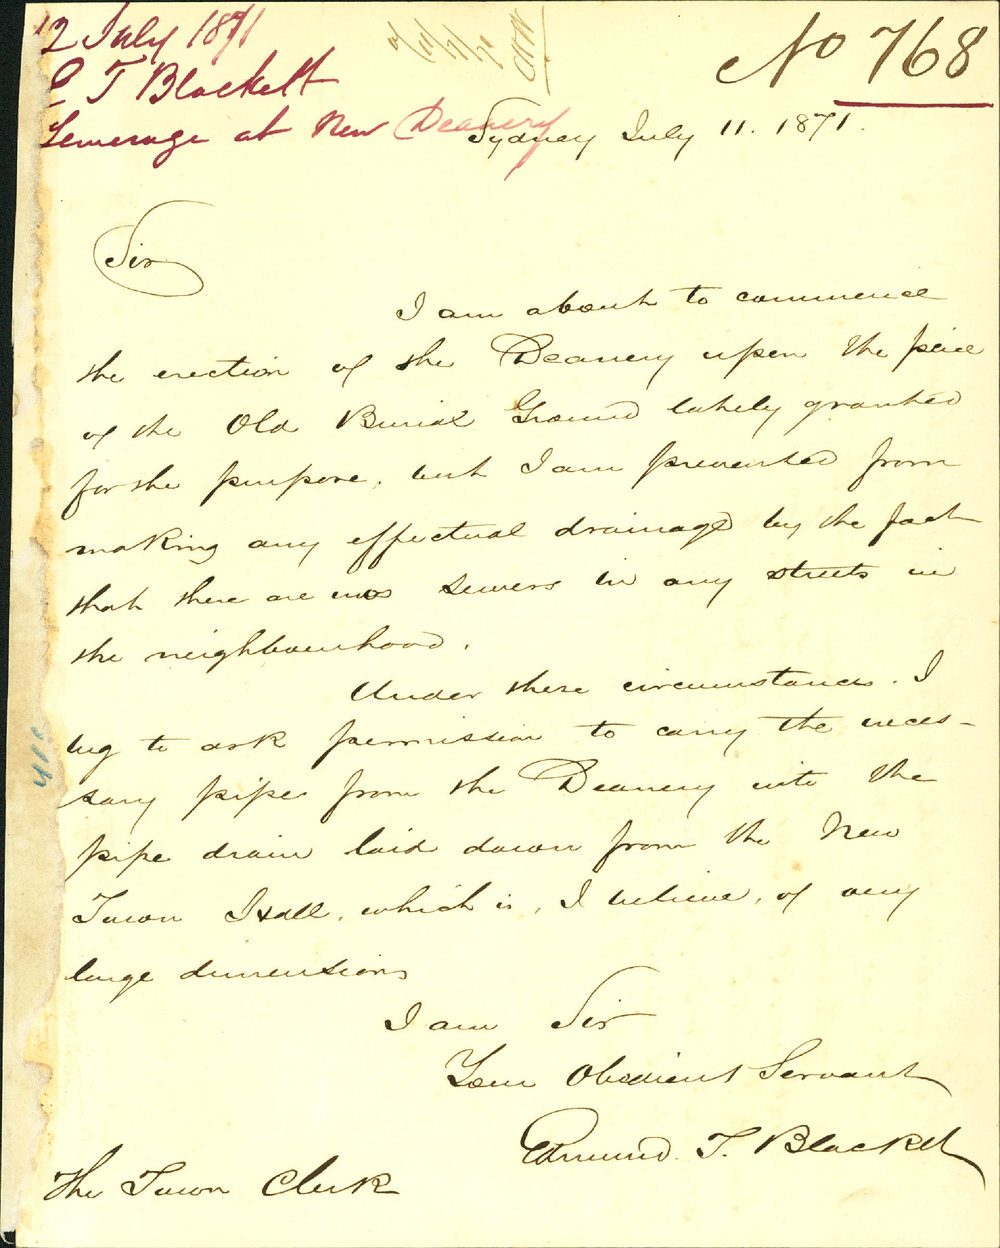 12 July 1871
E T Blackett
Sewerage at New Deanery
No 768
Sydney July 11. 1871.
Sir
I am about to commence
the erection of the Deanery upon the piece
of the Old Burial Ground lately granted
for the purpose, but I am prevented from
making any effectual drainage by the fact
that there are no sewers in any streets in
the neighbourhood.
Under these circumstances. I
beg to ask permission to carry the neces-
sary pipes from the Deanery into the
pipe drain laid down from the New
Town Hall, which is, I believe, of very
large dimensions
I am Sir
Your Obedient Servant
Edmund T. Blackett
The Town Clerk